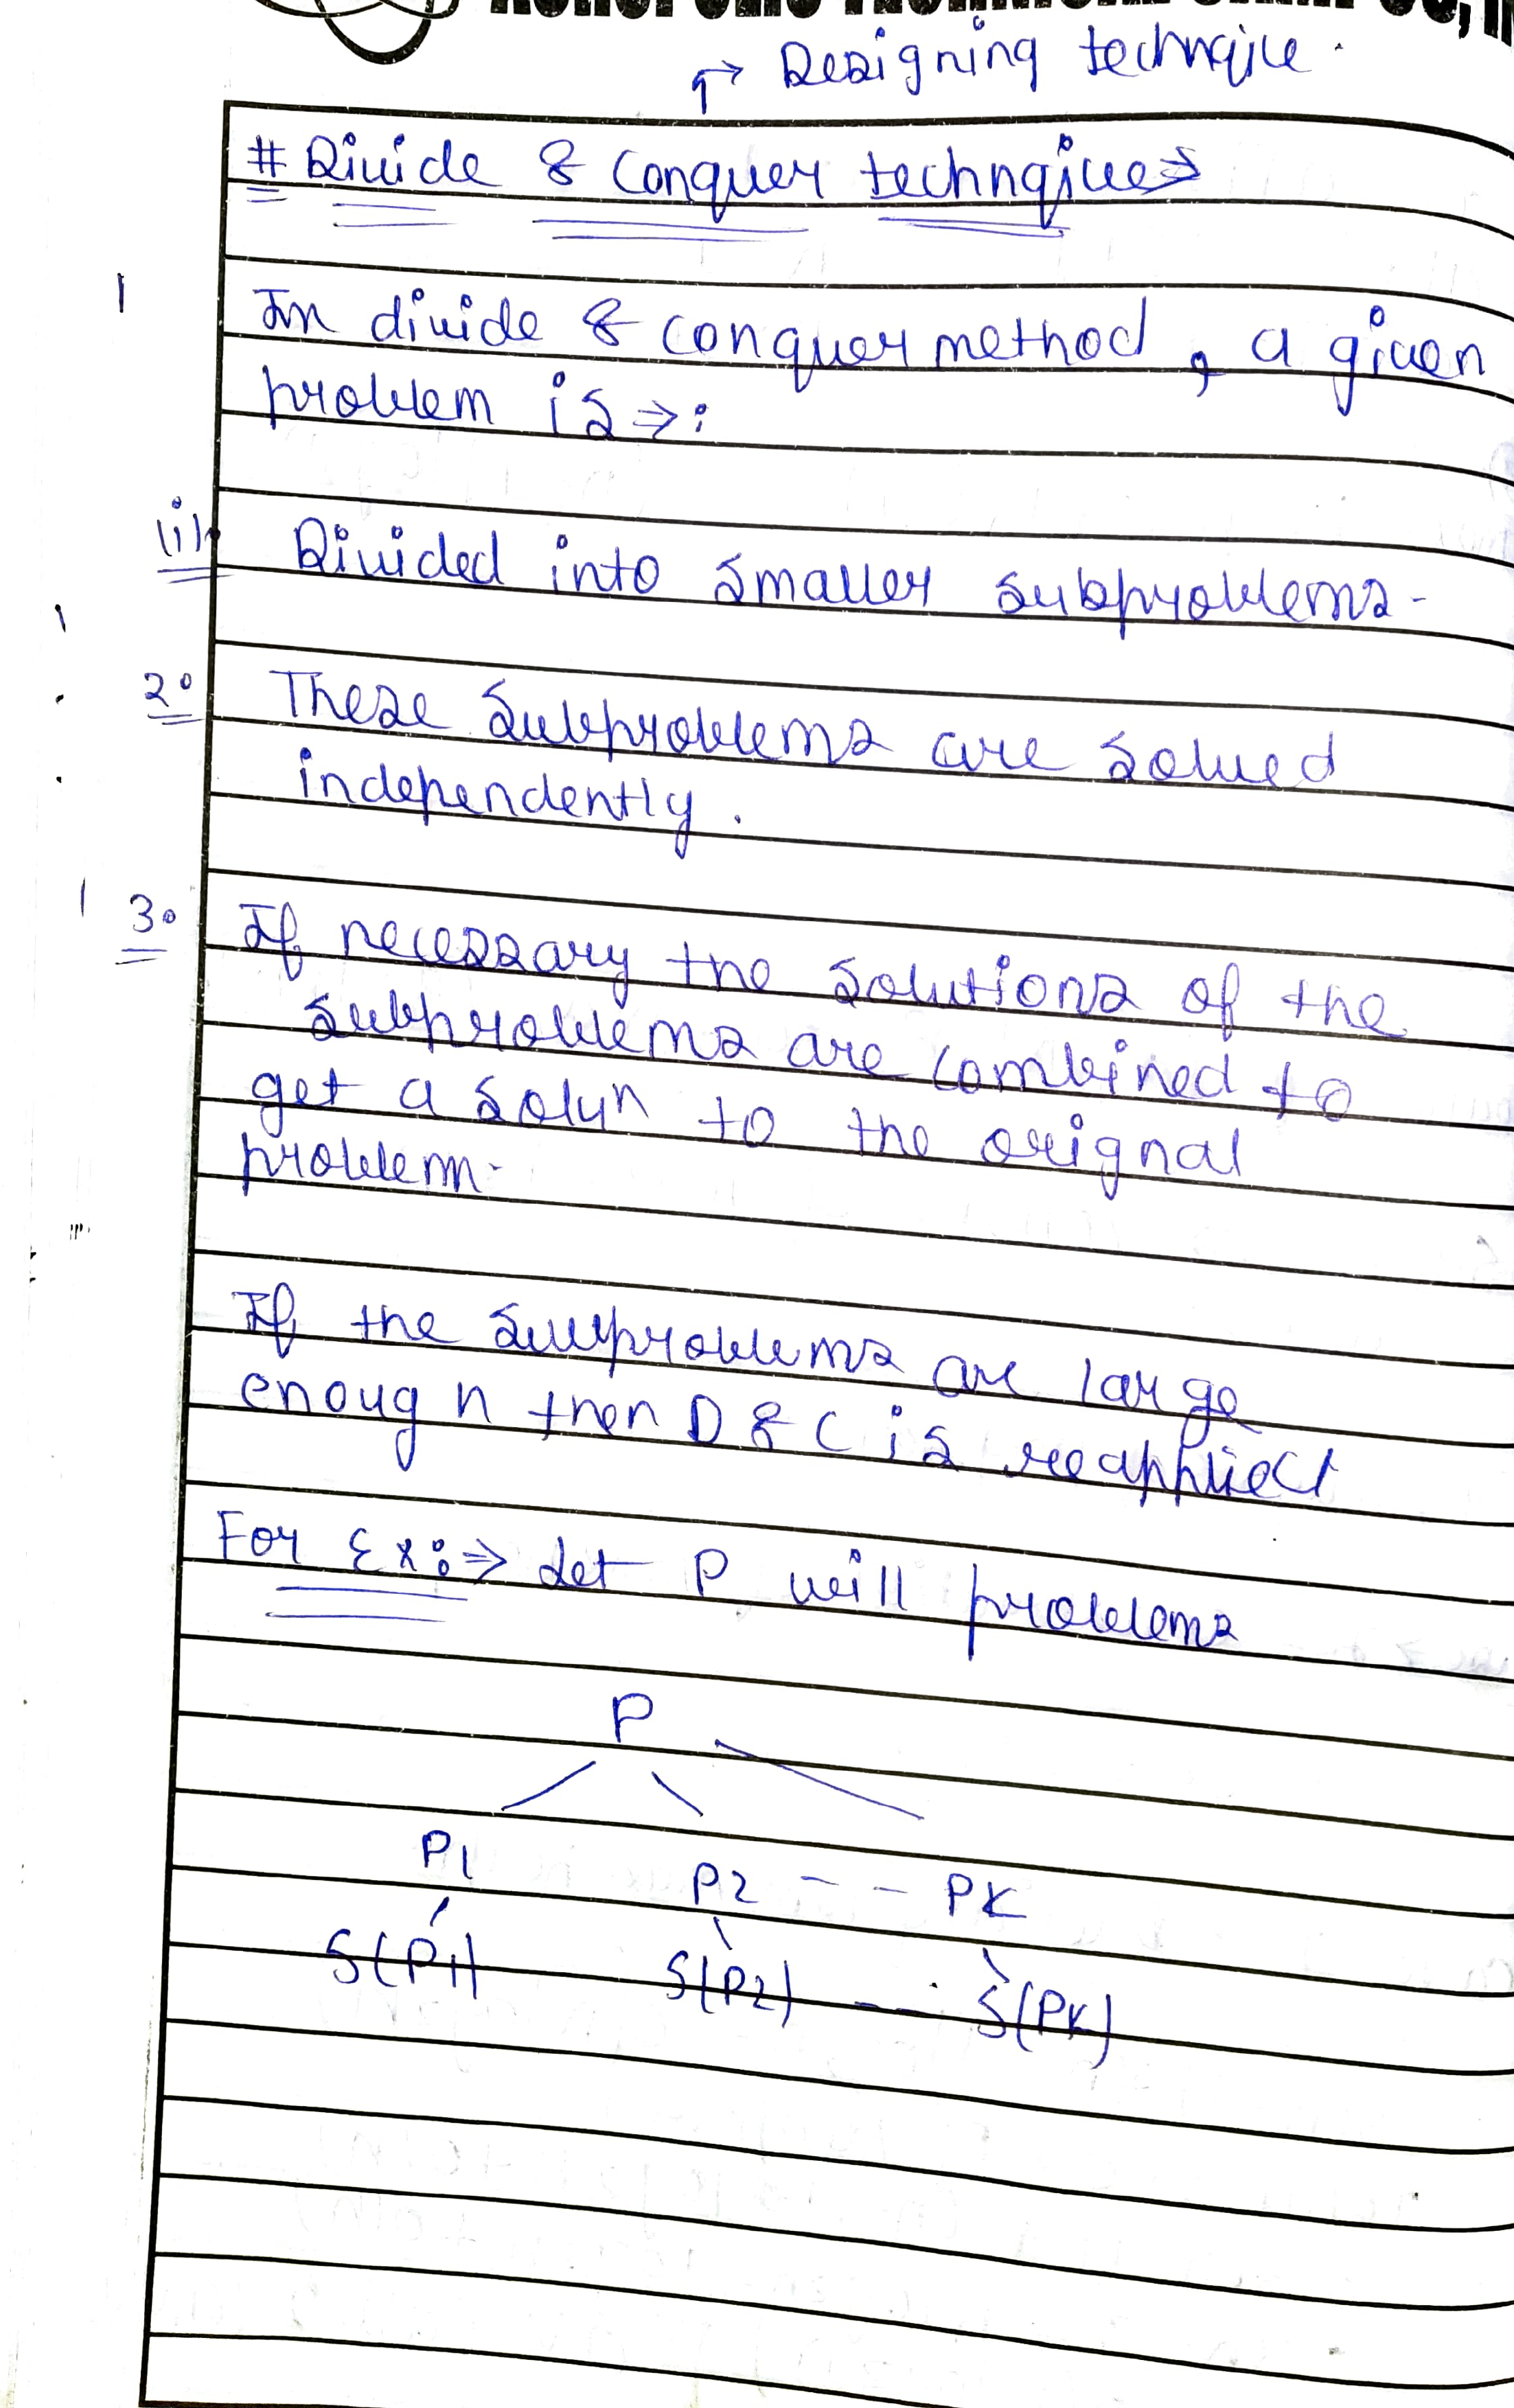 ↱ Designing technqiue.
# Divide & Conquer technqiue→
In divide & conquer method, a given
problem is ⇒:
(i). Divided into smaller subproblems.
2. These subproblems are solved
independently.
3. If necessary the solutions of the
subproblems are combined to
get a soluₙ to the orignal
problem.
If the subproblems are large
enough then D & C is reapplied
For Ex:⇒ Let P will problems
P
P1 P2 -- PK
S(P1) S(P2) -- S(PK)